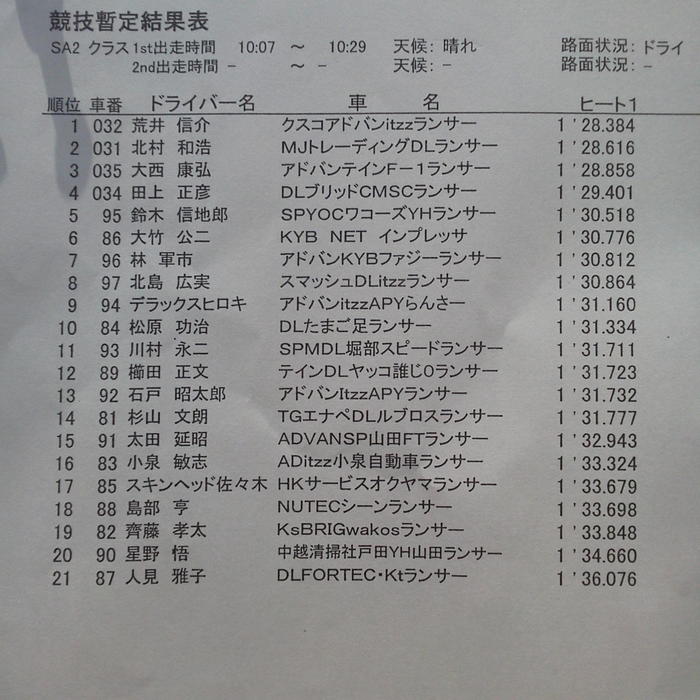 競技暫定結果表
SA2 クラス 1st出走時間 10:07 ～ 10:29 天候: 晴れ 路面状況: ドライ
2nd出走時間 - ～ - 天候: - 路面状況: -
順位 車番 ドライバー名 車 名 ヒート1
1 032 荒井 信介 クスコアドバンitzzランサー 1'28.384
2 031 北村 和浩 MJトレーディングDLランサー 1'28.616
3 035 大西 康弘 アドバンテインF-1ランサー 1'28.858
4 034 田上 正彦 DLブリッドCMSCランサー 1'29.401
5 95 鈴木 信地郎 SPYOCワコーズYHランサー 1'30.518
6 86 大竹 公二 KYB NET インプレッサ 1'30.776
7 96 林 軍市 アドバンKYBファジーランサー 1'30.812
8 97 北島 広実 スマッシュDLitzzランサー 1'30.864
9 94 デラックスヒロキ アドバンitzzAPYらんさー 1'31.160
10 84 松原 功治 DLたまご足ランサー 1'31.334
11 93 川村 永二 SPMDL堀部スピードランサー 1'31.711
12 89 櫛田 正文 テインDLヤッコ誰じ0ランサー 1'31.723
13 92 石戸 昭太郎 アドバンItzzAPYランサー 1'31.732
14 81 杉山 文朗 TGエナペDLルブロスランサー 1'31.777
15 91 太田 延昭 ADVANSP山田FTランサー 1'32.943
16 83 小泉 敏志 ADitzz小泉自動車ランサー 1'33.324
17 85 スキンヘッド佐々木 HKサービスオクヤマランサー 1'33.679
18 88 島部 亨 NUTECシーンランサー 1'33.698
19 82 齊藤 孝太 KsBRIGwakosランサー 1'33.848
20 90 星野 悟 中越清掃社戸田YH山田ランサー 1'34.660
21 87 人見 雅子 DLFORTEC・Ktランサー 1'36.076